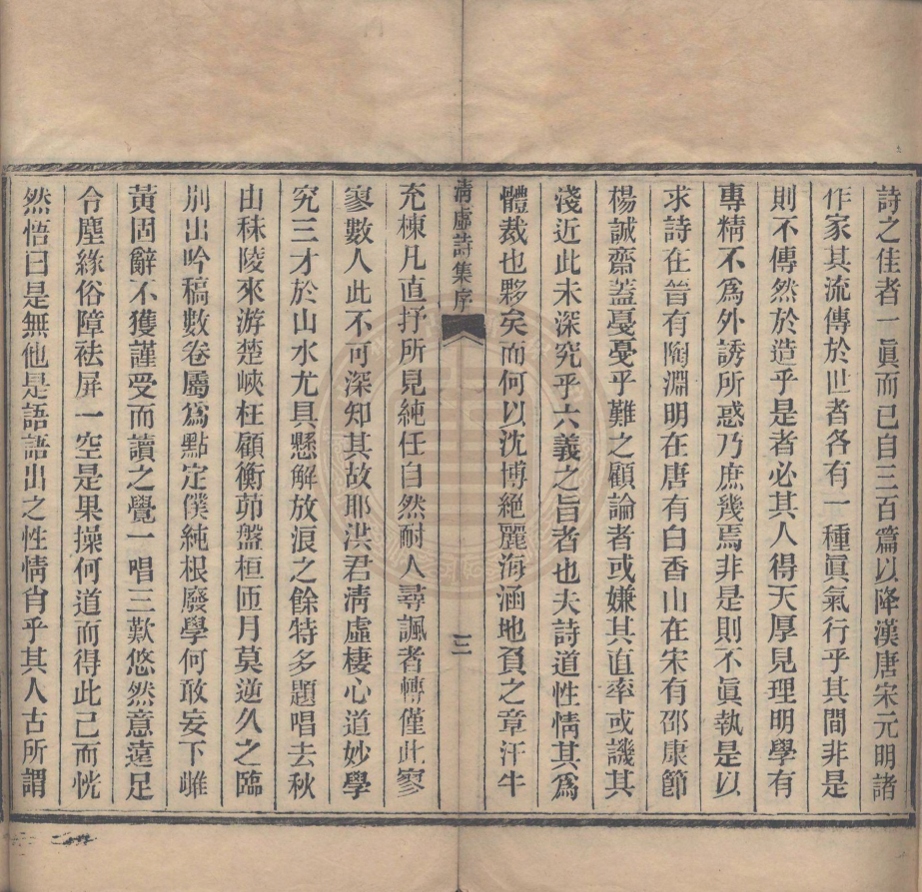 詩之佳者一眞而已自三百篇以降漢唐宋元明諸
作家其流傳於世者各有一種眞氣行乎其間非是
則不傳然於造乎是者必其人得天厚見理明學有
專精不爲外誘所惑乃庶幾焉非是則不眞執是以
求詩在晉有陶淵明在唐有白香山在宋有邵康節
楊誠齋蓋戞戞乎難之顧論者或嫌其直率或譏其
淺近此未深究乎六義之旨者也夫詩道性情其爲
體裁也夥矣而何以沈博絕麗海涵地負之章汗牛
淸虛詩集序
三
充棟凡直抒所見純任自然耐人尋諷者轉僅此寥
寥數人此不可深知其故耶洪君淸虛棲心道妙學
究三才於山水尤具懸解放浪之餘特多題唱去秋
由秣陵來游楚峽枉顧衡茆盤桓匝月莫逆久之臨
別出吟稿數卷屬爲點定僕純根廢學何敢妄下雌
黃固辭不獲謹受而讀之覺一唱三歎悠然意遠足
令塵緣俗障祛屏一空是果操何道而得此己而恍
然悟曰是無他是語語出之性情肖乎其人古所謂